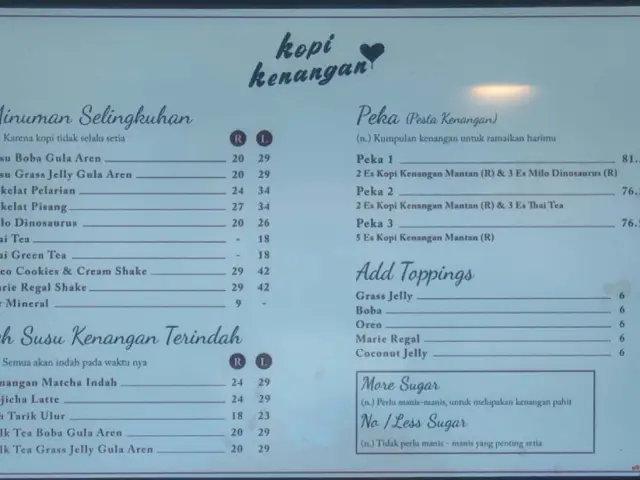 kopi
kenangan
Minuman Selingkuhan
Karena kopi tidak selalu setia
R L
Boba Gula Aren 20 29
Grass Jelly Gula Aren 20 29
Pelarian 24 34
Pisang 27 34
Dinosaurus 20 26
Tea - 18
Green Tea - 18
Cookies & Cream Shake 29 42
Regal Shake 29 42
Mineral 9 -
Susu Kenangan Terindah
Semua akan indah pada waktu nya
R L
Matcha Indah 24 29
Latte 24 29
Tarik Ulur 18 23
Tea Boba Gula Aren 20 29
Tea Grass Jelly Gula Aren 20 29
Peka (Pesta Kenangan)
(n.) Kumpulan kenangan untuk ramaikan harimu
Peka 1 81.
2 Es Kopi Kenangan Mantan (R) & 3 Es Milo Dinosaurus (R)
Peka 2 76.
2 Es Kopi Kenangan Mantan (R) & 3 Es Thai Tea
Peka 3 76.
5 Es Kopi Kenangan Mantan (R)
Add Toppings
Grass Jelly 6
Boba 6
Oreo 6
Marie Regal 6
Coconut Jelly 6
More Sugar
(n.) Perlu manis-manis, untuk melupakan kenangan pahit
No / Less Sugar
(n.) Tidak perlu manis - manis yang penting setia